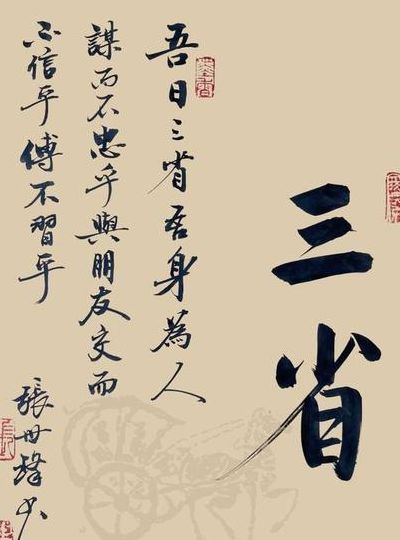 三省
吾日三省吾身為人
謀而不忠乎與朋友交而
不信乎傅不習乎
張世鋒书